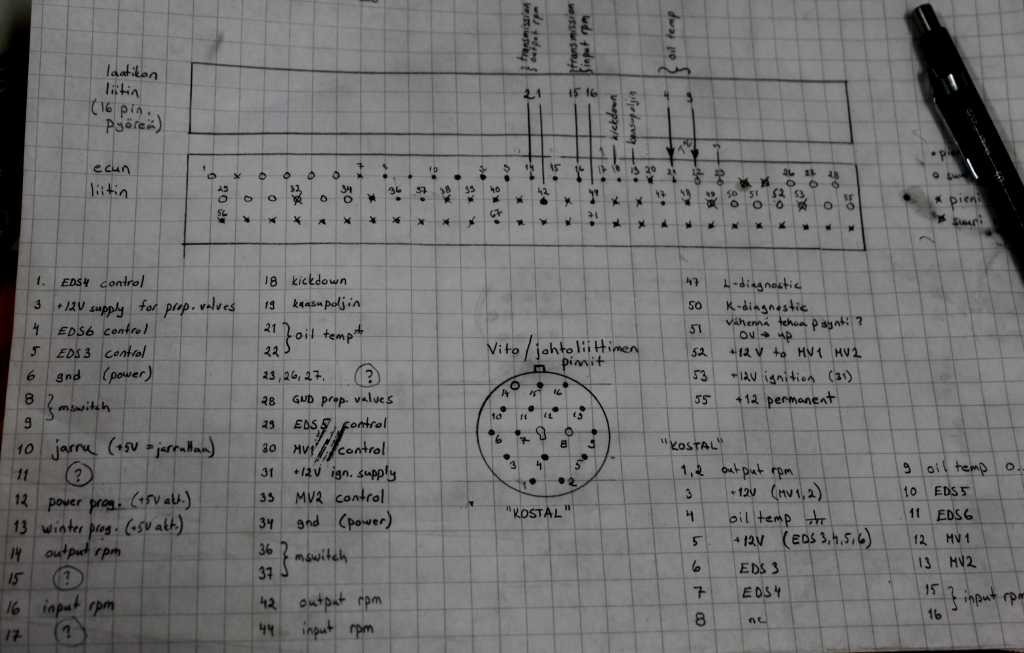 transmission
output rpm
transmission
input rpm
oil temp
laatikon
liitin
(16 pin.
pyöreä)
2 1 15 16
kickdown
kaasupoljin
ecun
liitin
1. EDS4 control
3 +12V supply for prop. valves
4 EDS6 control
5 EDS3 control
6 gnd (power)
8
9 mswitch
10 jarru (+5V = jarruttaa)
11 ?
12 power prog. (+5V akt.)
13 winter prog. (+5V akt.)
14 output rpm
15 ?
16 input rpm
17 ?
18 kickdown
19 kaasupoljin
21
22 oil temp
23, 26, 27. ?
28 GND prop. valves
29 EDS5 control
30 MV1 control
31 +12V ign. supply
33 MV2 control
34 gnd (power)
36
37 mswitch
42 output rpm
44 input rpm
Vito/johtoliittimen
pinnit
14 15 16
10 11 12 13
6 7 8 9
3 4 5
1 2
"KOSTAL"
47 L-diagnostic
50 K-diagnostic
51 vähennä tehoa pyyntö ?
0V → up
52 +12V to MV1 MV2
53 +12V ignition (31)
55 +12 permanent
"KOSTAL"
1,2 output rpm
3 +12V (MV1,2)
4 oil temp
5 +12V (EDS 3,4,5,6)
6 EDS 3
7 EDS4
8 nc
9 oil temp
10 EDS5
11 EDS6
12 MV1
13 MV2
15
16 input rpm
pieni
suuri